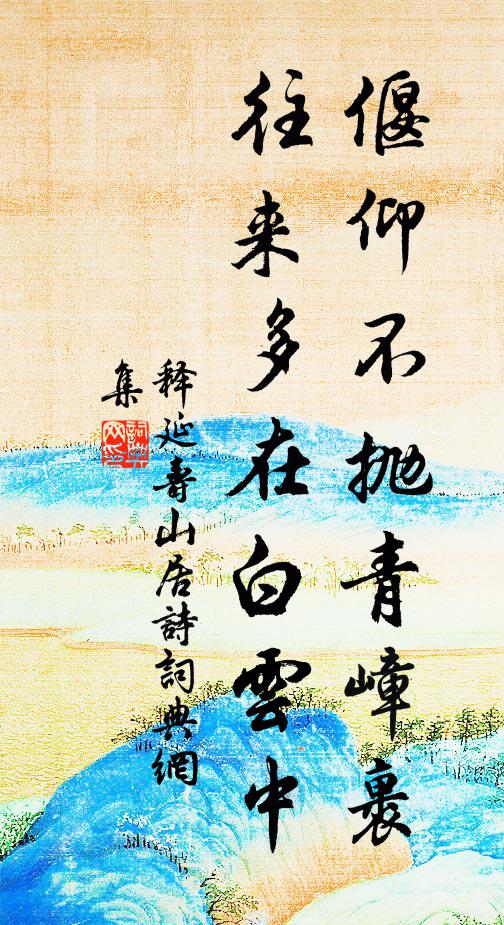 偃仰不抛青嶂裏
往来多在白雲中
释延壽山居詩詞典網
集